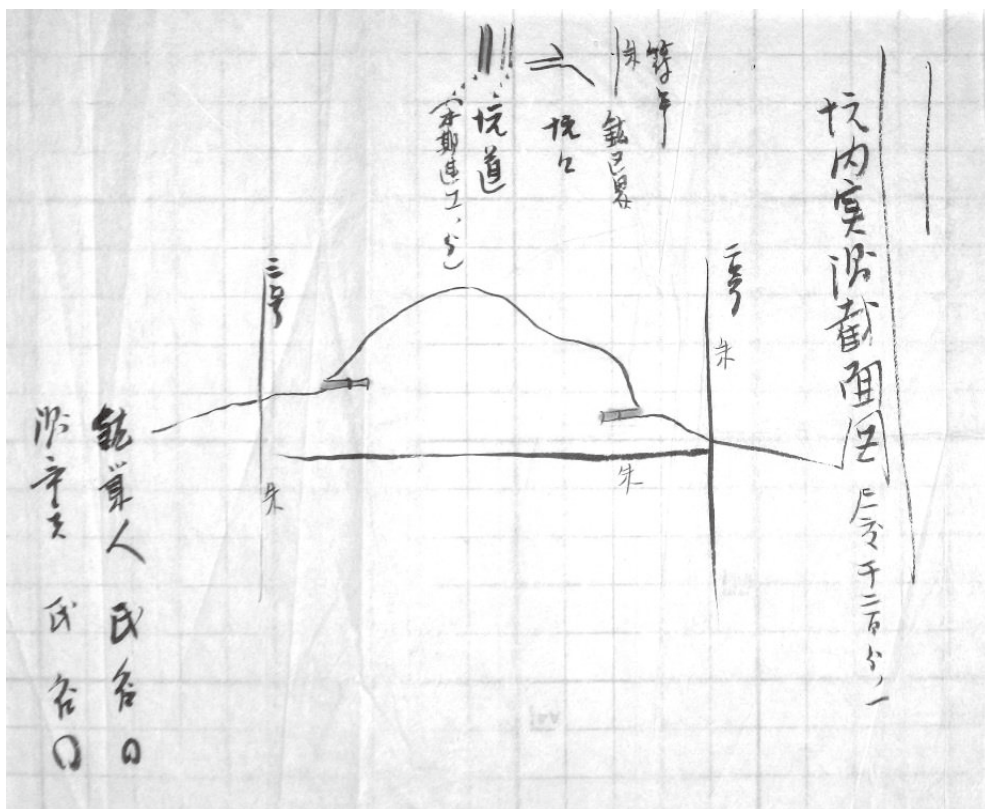 坑内実測截面図 尺度千二百分ノ一
符号
朱 鉱区界
坑口
坑道
(本期竣工ノ分)
二号
朱
朱
三号
朱
鉱業人 氏名 印
測量者 氏名 印